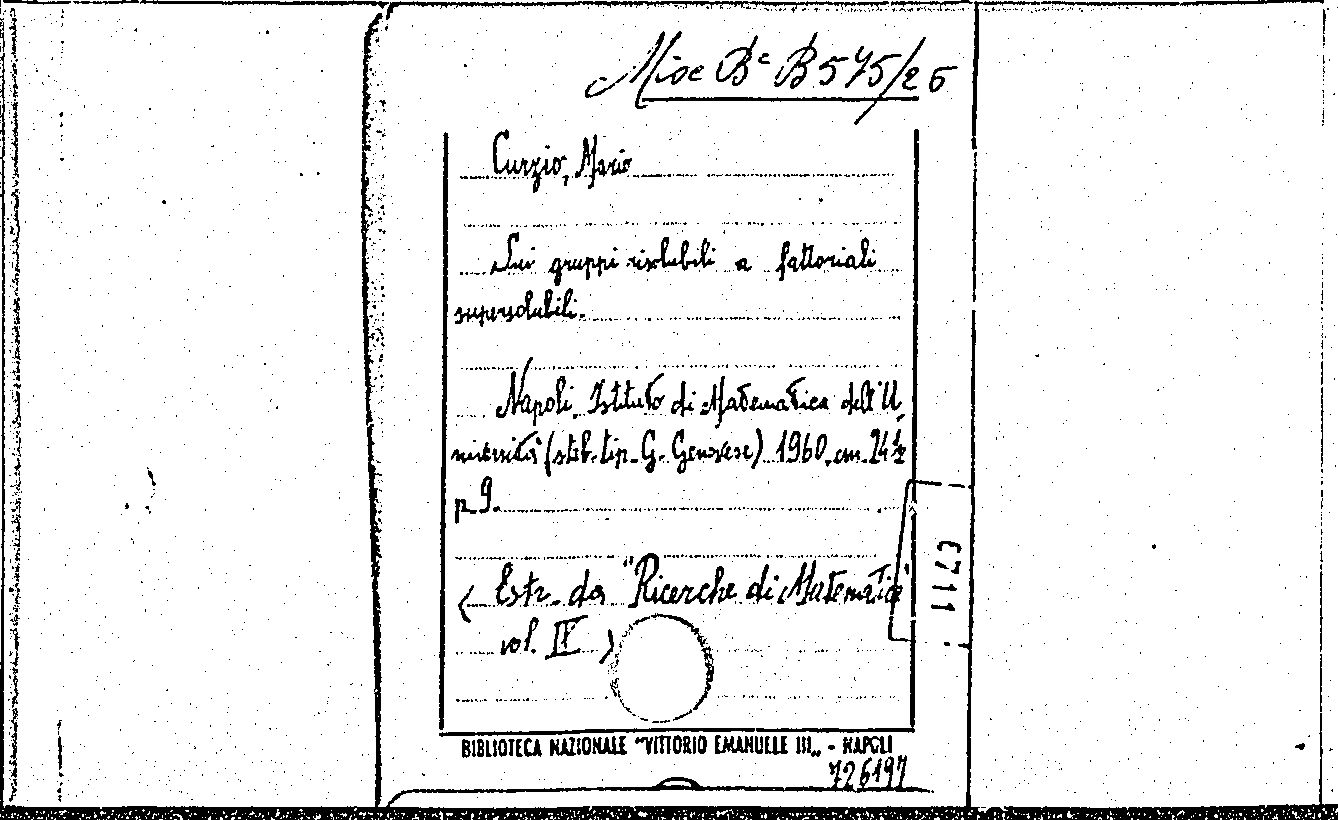 Misc Bᶜ B 575/26
Curzio, Mario
Sui gruppi risolubili a fattoriali
supersolubili.
Napoli. Istituto di Matematica dell'U
niversità (stab. tip. G. Genovese) 1960. cm. 24½
p. 9.
( Estr. da "Ricerche di Matematica"
vol. IV )
C711
BIBLIOTECA NAZIONALE "VITTORIO EMANUELE III„ - NAPOLI
726197